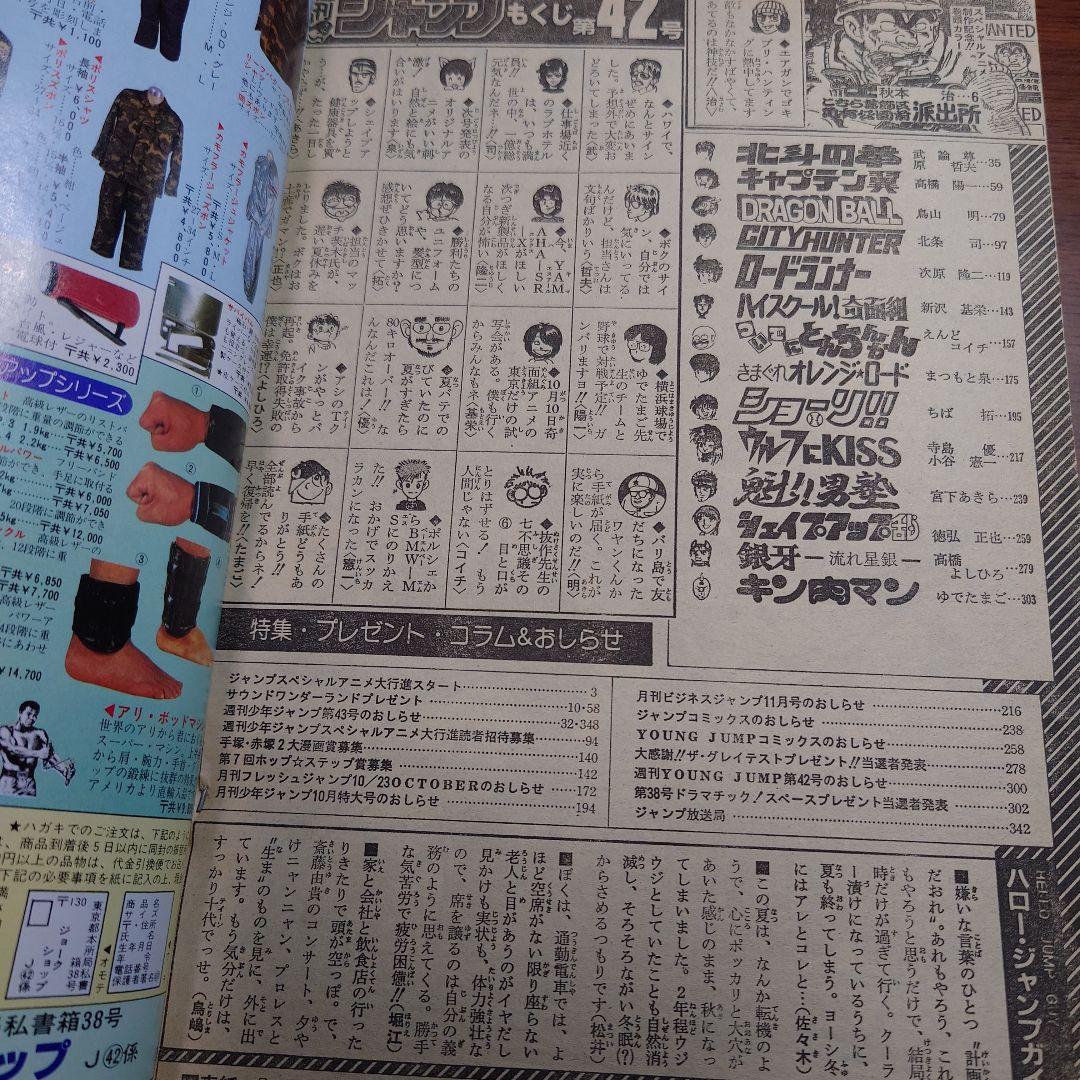 ジャンプ もくじ 第42号
スペシャルアニメ
制作記念!!
巻頭カラー
秋本 治…6
こちら葛飾区亀有公園前派出所
北斗の拳 武論尊 原哲夫…35
キャプテン翼 高橋陽一…59
DRAGON BALL 鳥山 明…79
CITY HUNTER 北条 司…97
ロードランナー 次原隆二…119
ハイスクール!奇面組 新沢基栄…143
ついでにとんちんかん えんどコイチ…157
きまぐれオレンジ★ロード まつもと泉…175
ショーリ!! ちば 拓…195
ウルフにKISS 寺島 優 小谷憲一…217
魁!!男塾 宮下あきら…239
シェイプアップ乱 徳弘正也…259
銀牙 ―流れ星 銀― 高橋よしひろ…279
キン肉マン ゆでたまご…303
◆エアガンでゴキ
ブリ・ハンティン
グに熱中してます。
敵もなかなかすばやくて、
あてるのは神技だ!〈治〉
◆ハワイで、
なんとサイン
ぜめにあいま
した。予想外で大変お
どろいてしまった〈武〉
◆仕事場近く
のラブホテル
は、いつも満
員!!世の中、一億総
元気なんだネー!!〈司〉
◆次号発表の
オリジナルア
ニメがいい刺
激!自然と絵にも気
合いがはいります〈泉〉
◆シェイプア
ップしようと
健康器具を買
◆ボクのサイ
ン、自分では
気にいってる
んだけど、担当さんは
文句ばかりいう〈哲夫〉
◆今、YAM
AHA・SR
Xがほしい
次つぎ新製品がほしく
なる自分が怖い〈隆二〉
◆勝利たちの
ユニフォーム
や、髪型につ
いてどう思いますか?
感想をきかせて〈拓〉
◆担当のマッ
チ茨木氏が、
遅い夏休みを
とりました。ボクはお
土産でガマン!〈正也〉
◆横浜球場で
ゆでたまご先
生のチームと
野球で対戦予定!!ガ
ンバリますヨ!!〈陽一〉
◆10月10日奇
面組アニメの
東京だけの試
写会がある。僕も行く
からみんなもネ〈基栄〉
◆夏バテでの
びていたのに
夏がすぎたら
80キロオーバー!!な
んなんだこれは!〈優〉
◆アシのTク
ンがやっとバ
イク事故から
再起。免許取得失敗の
僕は幸運!?〈よしひろ〉
◆バリ島で友
だちになった
ワヤンくんか
ら手紙が届く。これが
実に楽しいのだ!!〈明〉
◆抜作先生の
七不思議その
⑥ 目と口が
とりはずせる!もう
人間じゃない〈コイチ〉
◆ポルシェか
らBMW―M
Sにのりかえ
た!!おかげでスッカ
ラカンになった〈憲一〉
◆たくさんの
手紙どうもあ
りがとう!!
全部読んでるからネ!
早く復帰を!!〈たまご〉
特集・プレゼント・コラム&おしらせ
ジャンプスペシャルアニメ大行進スタート…3
サウンドワンダーランドプレゼント…10・58
週刊少年ジャンプ第43号のおしらせ…32・348
週刊少年ジャンプスペシャルアニメ大行進読者招待募集…94
手塚・赤塚2大漫画賞募集…140
第7回ホップ☆ステップ賞募集…142
月刊フレッシュジャンプ10/23OCTOBERのおしらせ…172
月刊少年ジャンプ10月特大号のおしらせ…194
月刊ビジネスジャンプ11月号のおしらせ…216
ジャンプコミックスのおしらせ…238
YOUNG JUMPコミックスのおしらせ…258
大感謝!!ザ・グレイテストプレゼント!!当選者発表…278
週刊YOUNG JUMP第42号のおしらせ…300
第38号ドラマチック!スペースプレゼント当選者発表…302
ジャンプ放送局…342
ハロー・ジャンプガ
■嫌いな言葉のひとつ“計画
だおれ”。あれもやろう、これ
もやろうと思うだけで、結局
時だけが過ぎて行く。クーラ
ー漬けになっているうちに、
夏も終ってしまう。ヨーシ冬
にはアレとコレと…(佐々木)
■この夏は、なんか転機のよ
うで、心にポッカリと大穴が
あいた感じのまま、秋になっ
てしまいました。2年程ウジ
ウジとしていたことも自然消
滅し、そろそろながい冬眠(?)
からさめるつもりです(松井)
■ぼくは、通勤電車では、よ
ほど空席がない限り座らない
老人と目があうのがイヤだし
見かけも実状も、体力強壮な
ので、席を譲るのは自分の義
務のように思えてくる。勝手
な気苦労で疲労困憊!!(堀江)
■家と会社と飲食店の行った
りきたりで頭が空っぽ。で、
斎藤由貴のコンサート、夕や
けニャンニャン、プロレスと
“生ま”のものを見に、外に出
ています。もう気分だけは、
すっかり十代でっせ。(鳥嶋)
▶ポリスシャツ
長袖¥6,000 半袖¥5,400
▶ポリスズボン
▶カモフラージュジャケット
〒共¥5,800
▶カモフラージュズボン
〒共¥4,800
〒共¥2,300
アップシリーズ
高級レザーのリストバ
〒共¥5,700
〒共¥6,500
〒共¥6,000
〒共¥7,050
〒共¥12,000
¥6,850
¥7,700
¥14,700
◀アリ・ボッドマシ
世界のアリから君にお
スーパー・マシン。
から肩・腕力・手首・
ップの鍛練に抜群の効
アメリカより直輸入品
★ハガキでのご注文は、下記のように
、商品到着後5日以内に同封の
円以上の品物は、代金引換便でお
下記の必要事項を紙に記入の上、
〒130
東京都本所局私書箱38号
ジョークショップ
J㊷係
オモテ
商品名
サイズ
〒・住所
氏名
生年月日
電話番号
保護者署名
私書箱38号
ップ J㊷係